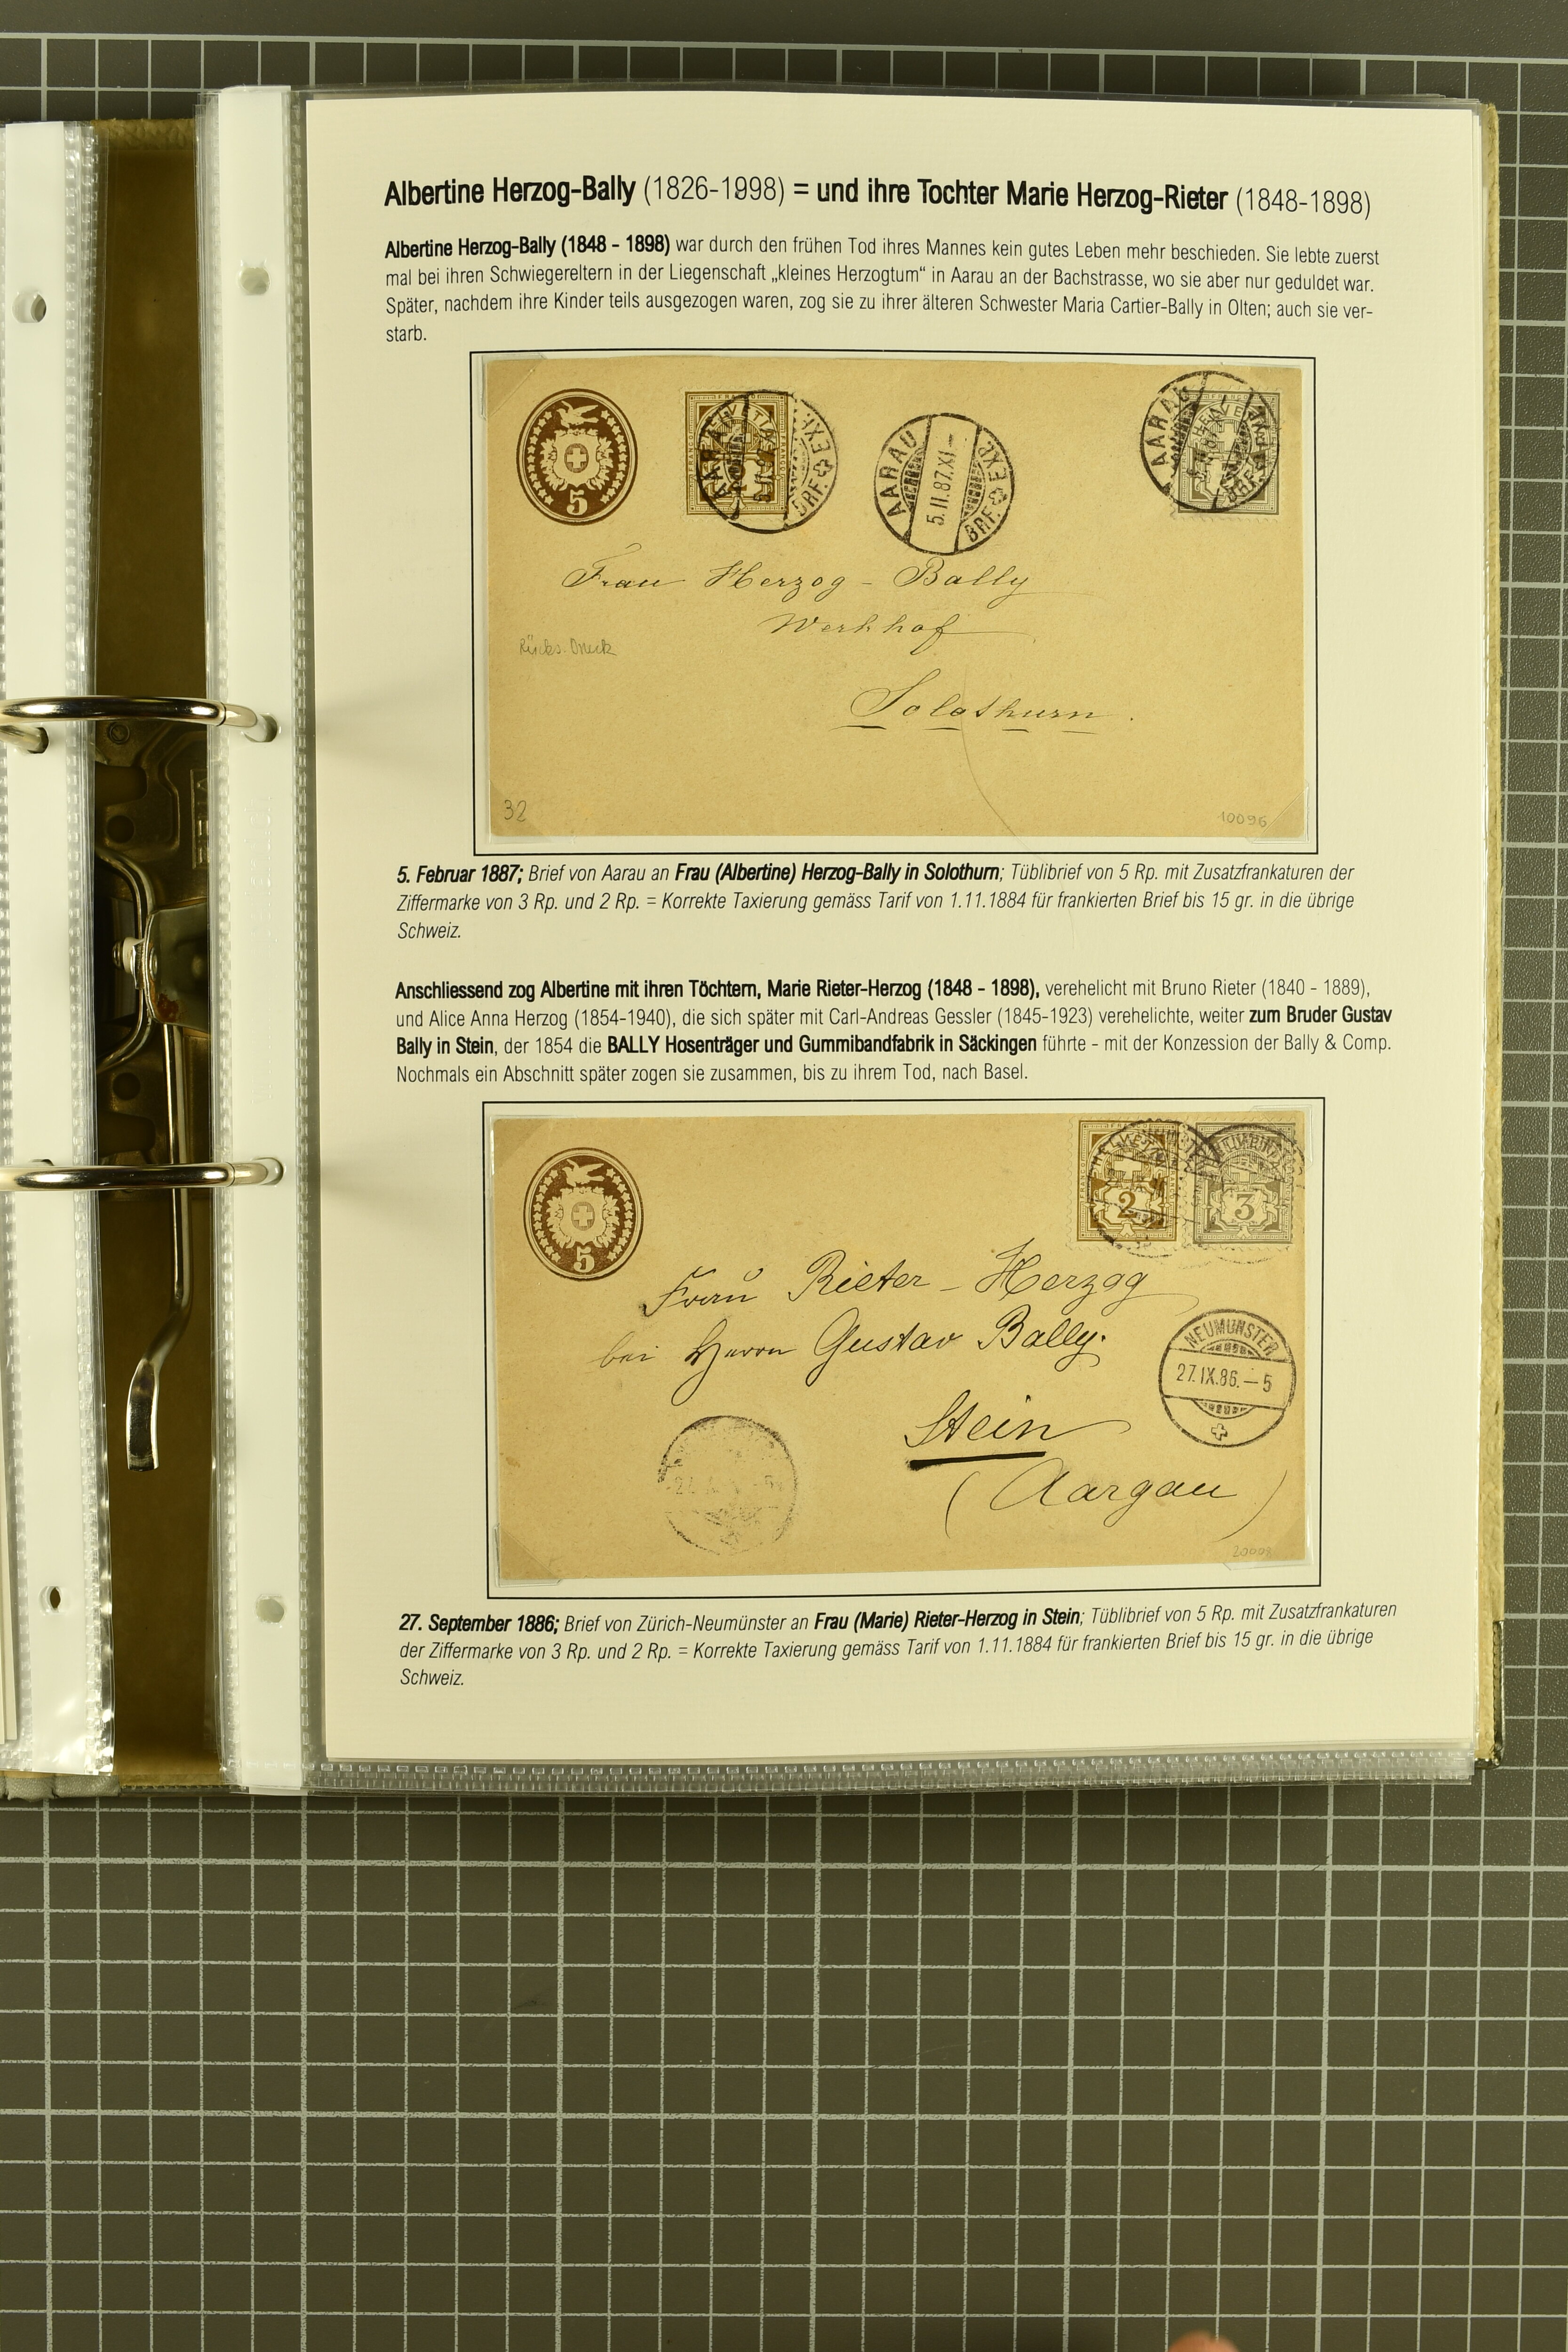 Albertine Herzog-Bally (1826-1998) = und ihre Tochter Marie Herzog-Rieter (1848-1898)
Albertine Herzog-Bally (1848 - 1898) war durch den frühen Tod ihres Mannes kein gutes Leben mehr beschieden. Sie lebte zuerst
mal bei ihren Schwiegereltern in der Liegenschaft „kleines Herzogtum“ in Aarau an der Bachstrasse, wo sie aber nur geduldet war.
Später, nachdem ihre Kinder teils ausgezogen waren, zog sie zu ihrer älteren Schwester Maria Cartier-Bally in Olten; auch sie ver-
starb.
5
AARAU BRF. EXP.
AARAU 5.II.87.XI- BRF. EXP.
AARAU HELVETIA BRF. EXP.
Frau Herzog - Bally
Werkhof
Rücks. Dreck
Solothurn.
32
10096
5. Februar 1887; Brief von Aarau an Frau (Albertine) Herzog-Bally in Solothurn; Tüblibrief von 5 Rp. mit Zusatzfrankaturen der
Ziffermarke von 3 Rp. und 2 Rp. = Korrekte Taxierung gemäss Tarif von 1.11.1884 für frankierten Brief bis 15 gr. in die übrige
Schweiz.
Anschliessend zog Albertine mit ihren Töchtern, Marie Rieter-Herzog (1848 - 1898), verehelicht mit Bruno Rieter (1840 - 1889),
und Alice Anna Herzog (1854-1940), die sich später mit Carl-Andreas Gessler (1845-1923) verehelichte, weiter zum Bruder Gustav
Bally in Stein, der 1854 die BALLY Hosenträger und Gummibandfabrik in Säckingen führte - mit der Konzession der Bally & Comp.
Nochmals ein Abschnitt später zogen sie zusammen, bis zu ihrem Tod, nach Basel.
5
2
3
Frau Rieter - Herzog
bei Herrn Gustav Bally.
NEUMÜNSTER
27.IX.86.-5
Stein
(Aargau)
20008
27. September 1886; Brief von Zürich-Neumünster an Frau (Marie) Rieter-Herzog in Stein; Tüblibrief von 5 Rp. mit Zusatzfrankaturen
der Ziffermarke von 3 Rp. und 2 Rp. = Korrekte Taxierung gemäss Tarif von 1.11.1884 für frankierten Brief bis 15 gr. in die übrige
Schweiz.